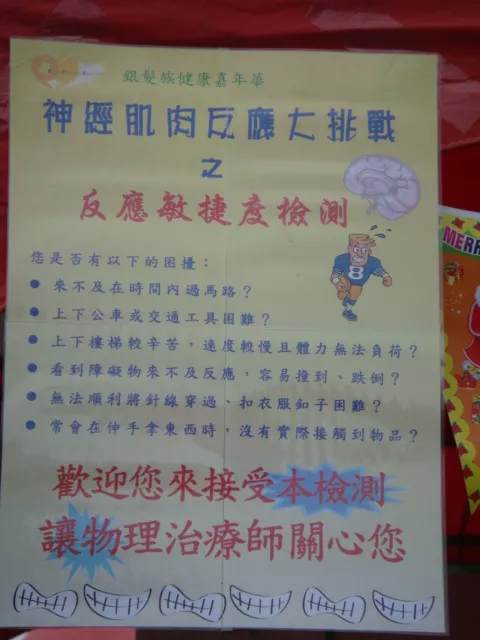 銀髮族健康嘉年華
神經肌肉反應大挑戰
之
反應敏捷度檢測
您是否有以下的困擾：
● 來不及在時間內過馬路？
● 上下公車或交通工具困難？
● 上下樓梯較辛苦，速度較慢且體力無法負荷？
● 看到障礙物來不及反應，容易撞到、跌倒？
● 無法順利將針線穿過、扣衣服釦子困難？
● 常會在伸手拿東西時，沒有實際接觸到物品？
歡迎您來接受本檢測
讓物理治療師關心您
8
MERR